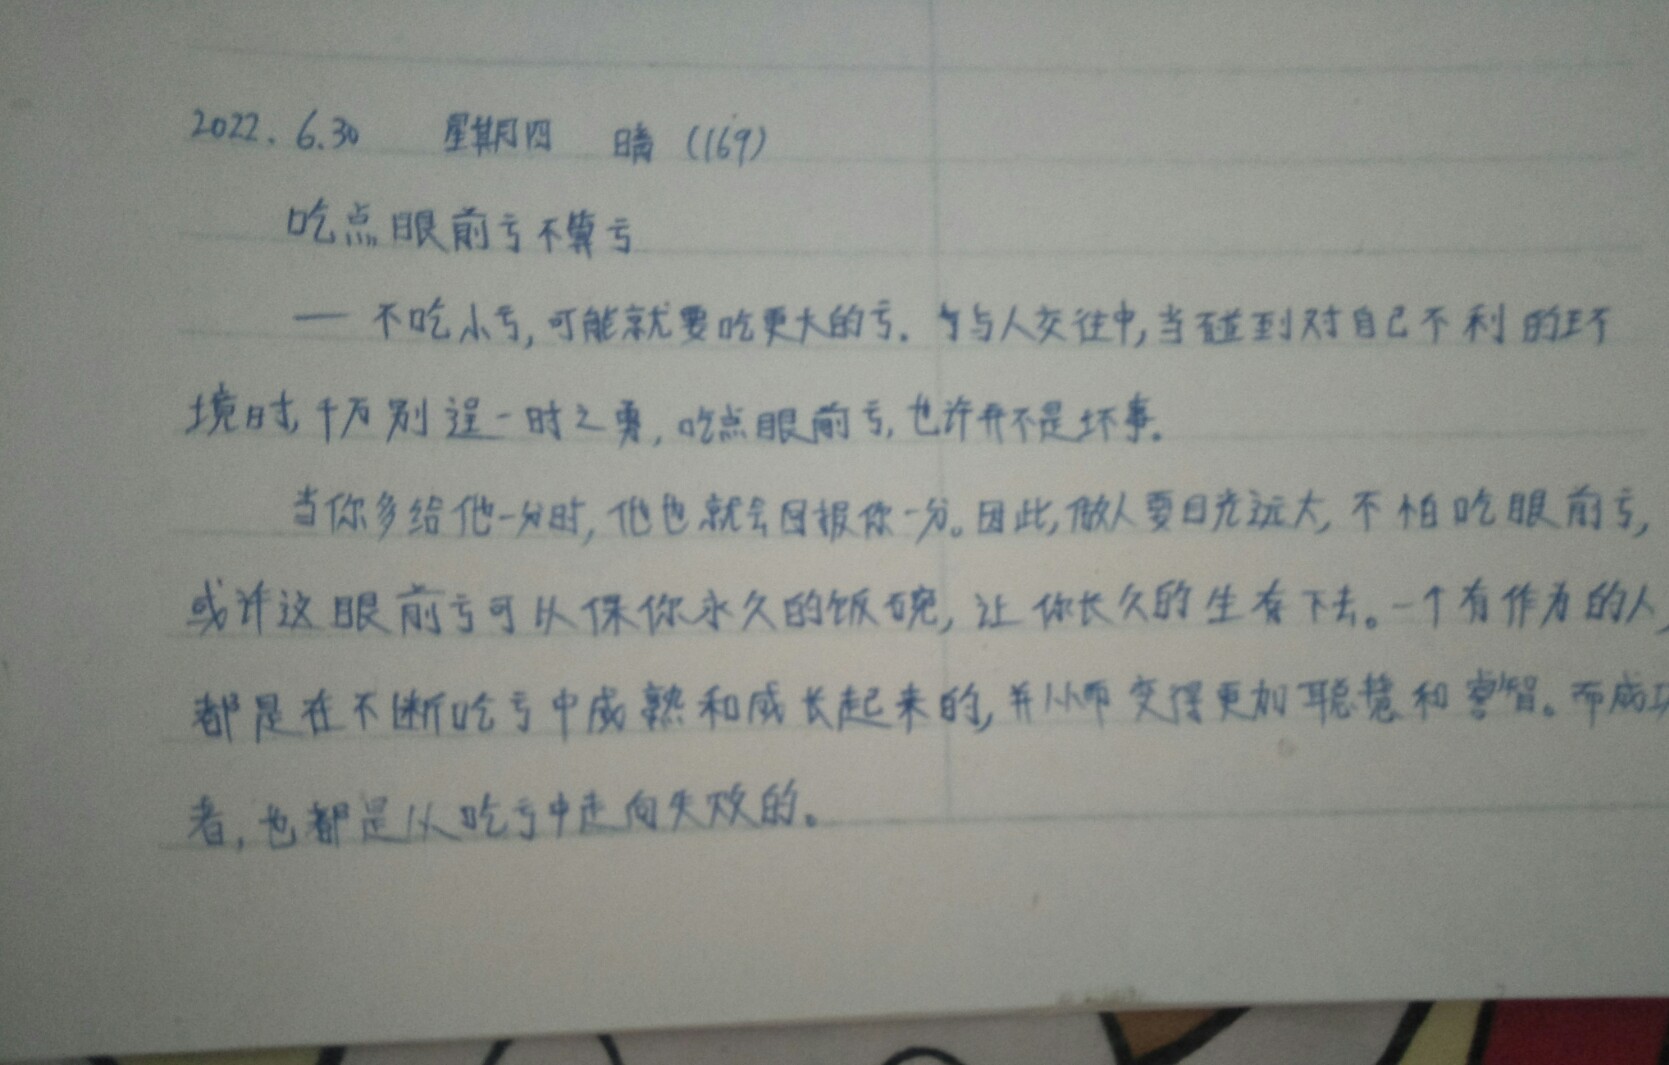 2022.6.30 星期四 晴 (169)
吃点眼前亏不算亏
— 不吃小亏,可能就要吃更大的亏. 与人交往中,当碰到对自己不利的环
境时,千万别逞一时之勇,吃点眼前亏,也许并不是坏事.
当你多给他一分时,他也就会回报你一分。因此,做人要目光远大,不怕吃眼前亏,
或许这眼前亏可以保你永久的饭碗,让你长久的生存下去。一个有作为的人,
都是在不断吃亏中成熟和成长起来的,并从而变得更加聪慧和睿智。而成功
者,也都是从吃亏中走向失败的。